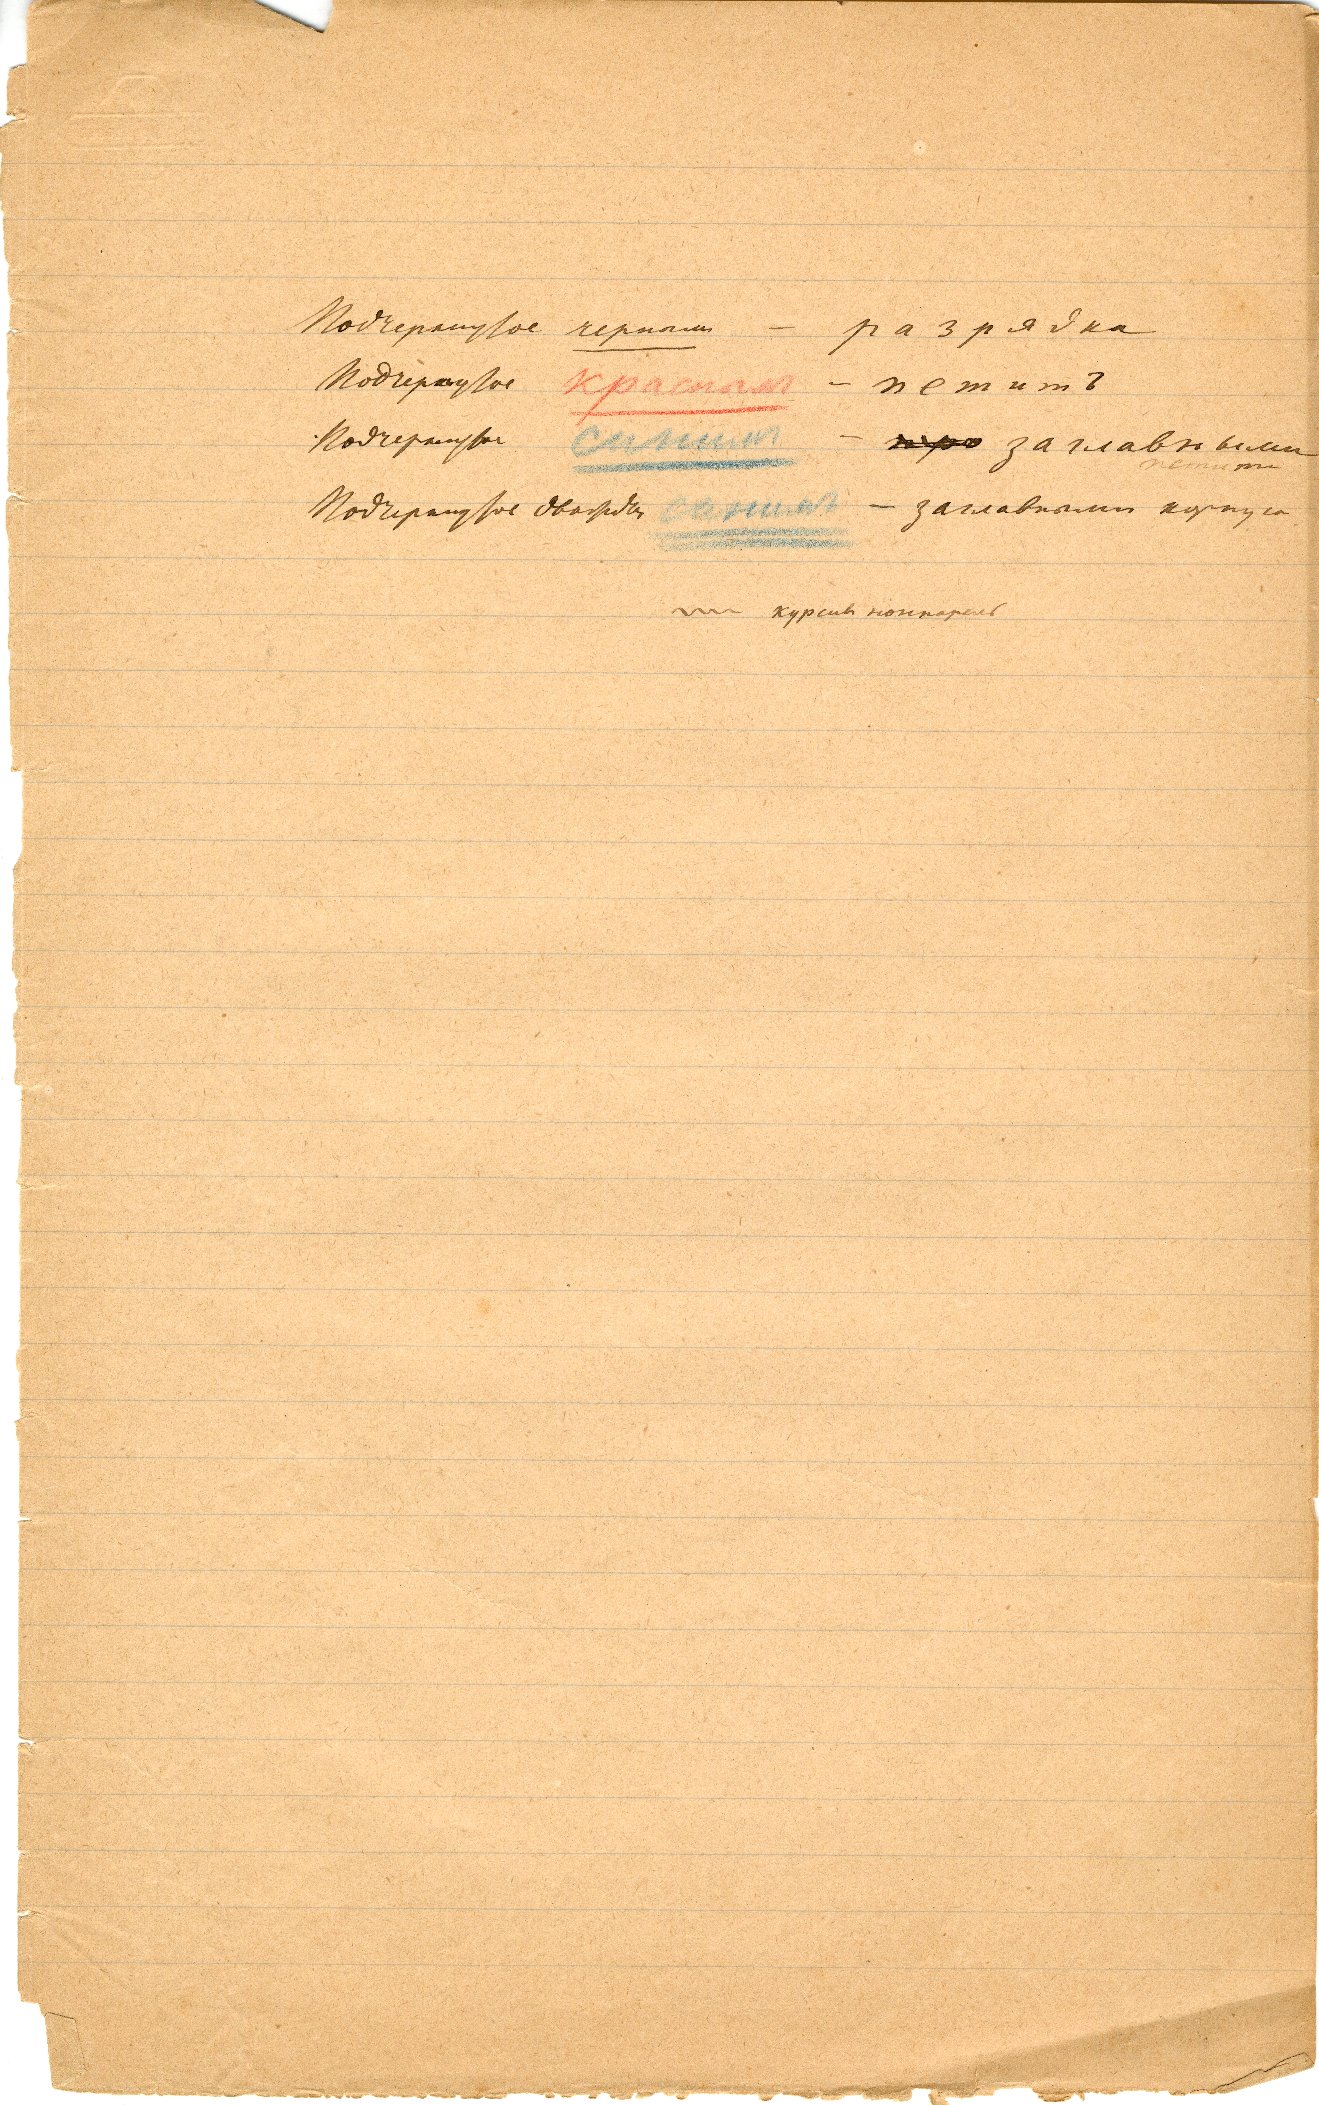 Подчеркнутое черным — разрядка
Подчеркнутое красным — петитъ
Подчеркнутое синимъ — заглавными
петита
Подчеркнутое дважды синимъ — заглавными корпуса
курсивъ нонпарель